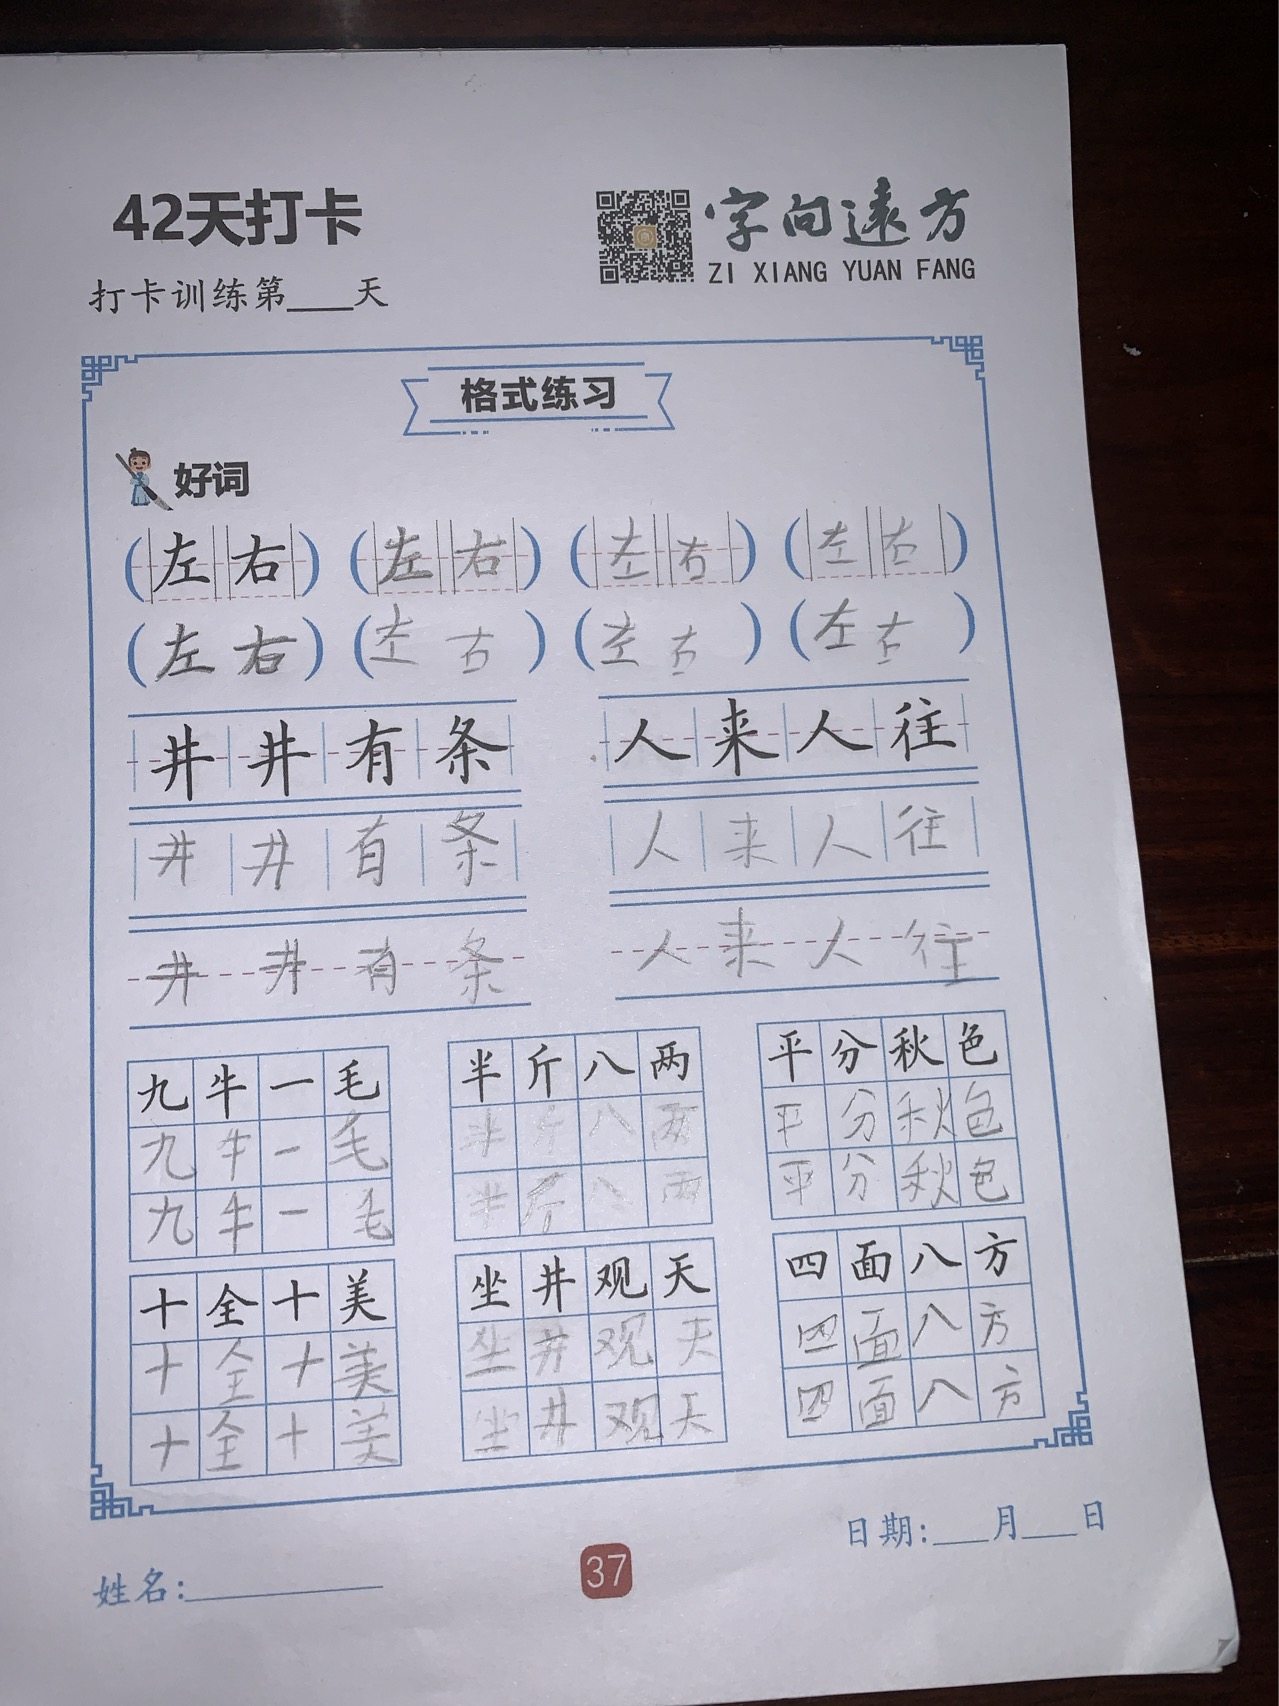 42天打卡
字向远方
ZI XIANG YUAN FANG
打卡训练第___天
格式练习
好词
(左右) (左右) (左右) (左右)
(左右) (左右) (左右) (左右)
井井有条 人来人往
井井有条 人来人往
井井有条 人来人往
九牛一毛 半斤八两 平分秋色
九牛一毛 半斤八两 平分秋色
九牛一毛 半斤八两 平分秋色
十全十美 坐井观天 四面八方
十全十美 坐井观天 四面八方
十全十美 坐井观天 四面八方
日期:___月___日
姓名:_________
37